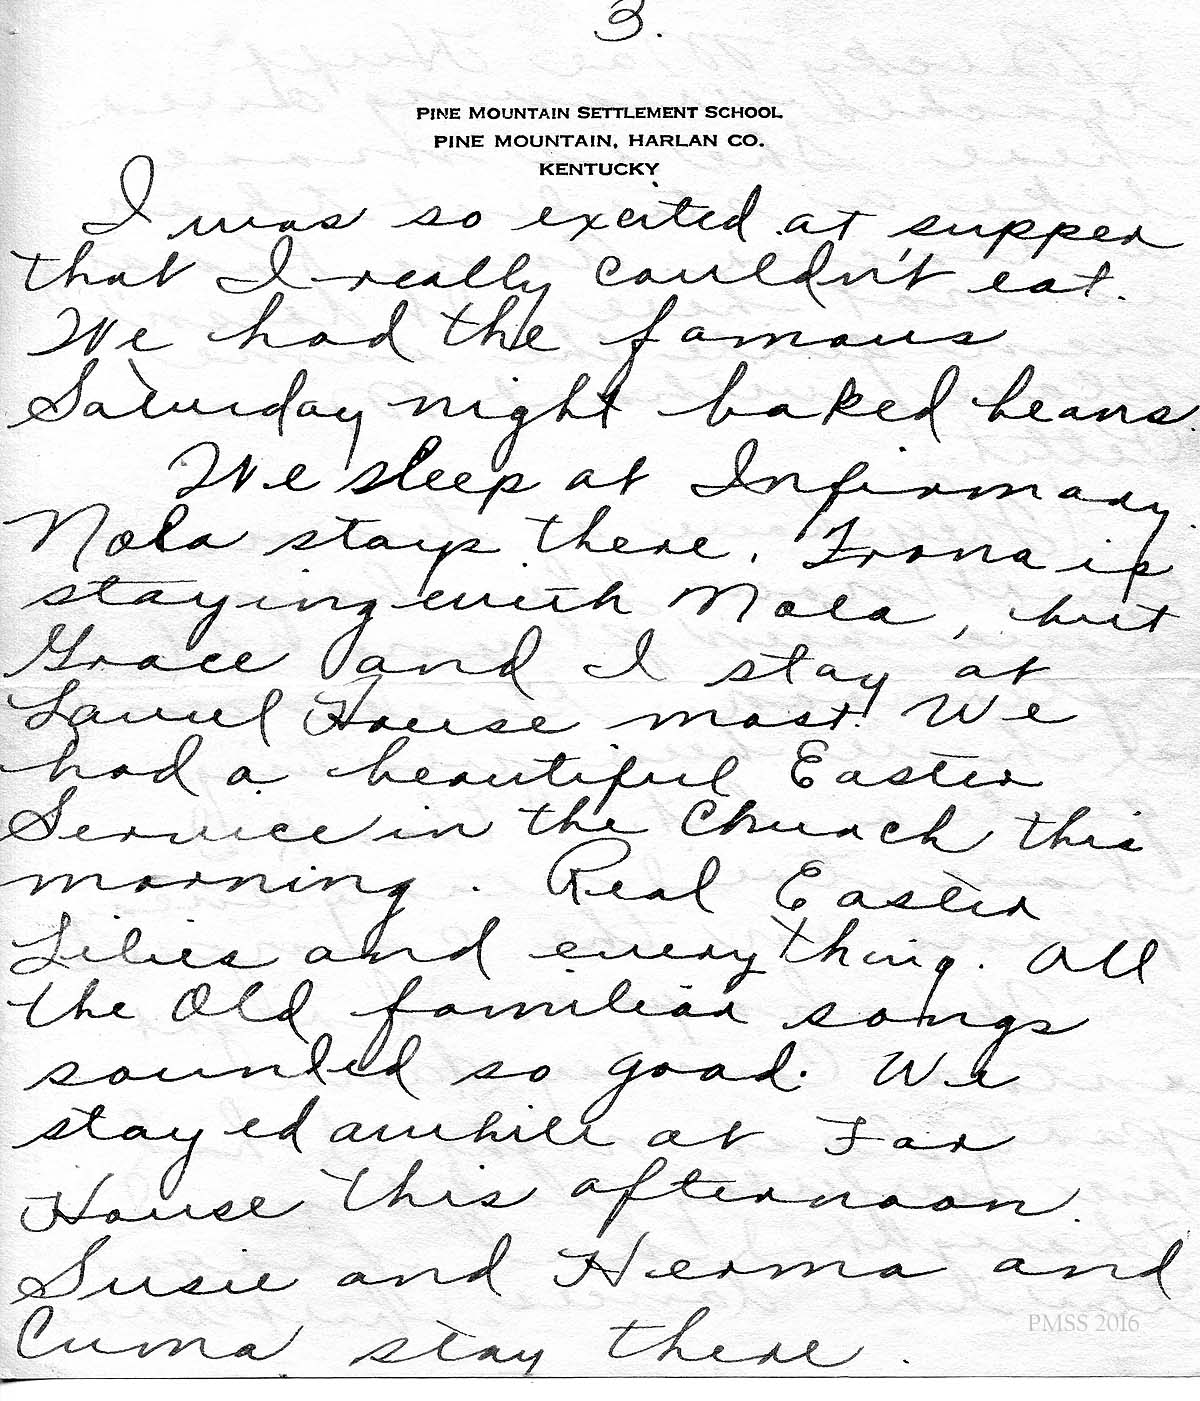 3.
PINE MOUNTAIN SETTLEMENT SCHOOL
PINE MOUNTAIN, HARLAN CO.
KENTUCKY
I was so excited at supper
that I really couldn't eat.
We had the famous
Saturday night baked beans.
We sleep at Infirmary.
Nola stays there. Frona is
staying with Nola, but
Grace and I stay at
Laurel House most. We
had a beautiful Easter
Service in the Church this
morning. Real Easter
Lilies and everything. All
the Old familiar songs
sounded so good. We
stayed awhile at Far
House this afternoon.
Susie and Herma and
Cuma stay there.
PMSS 2016